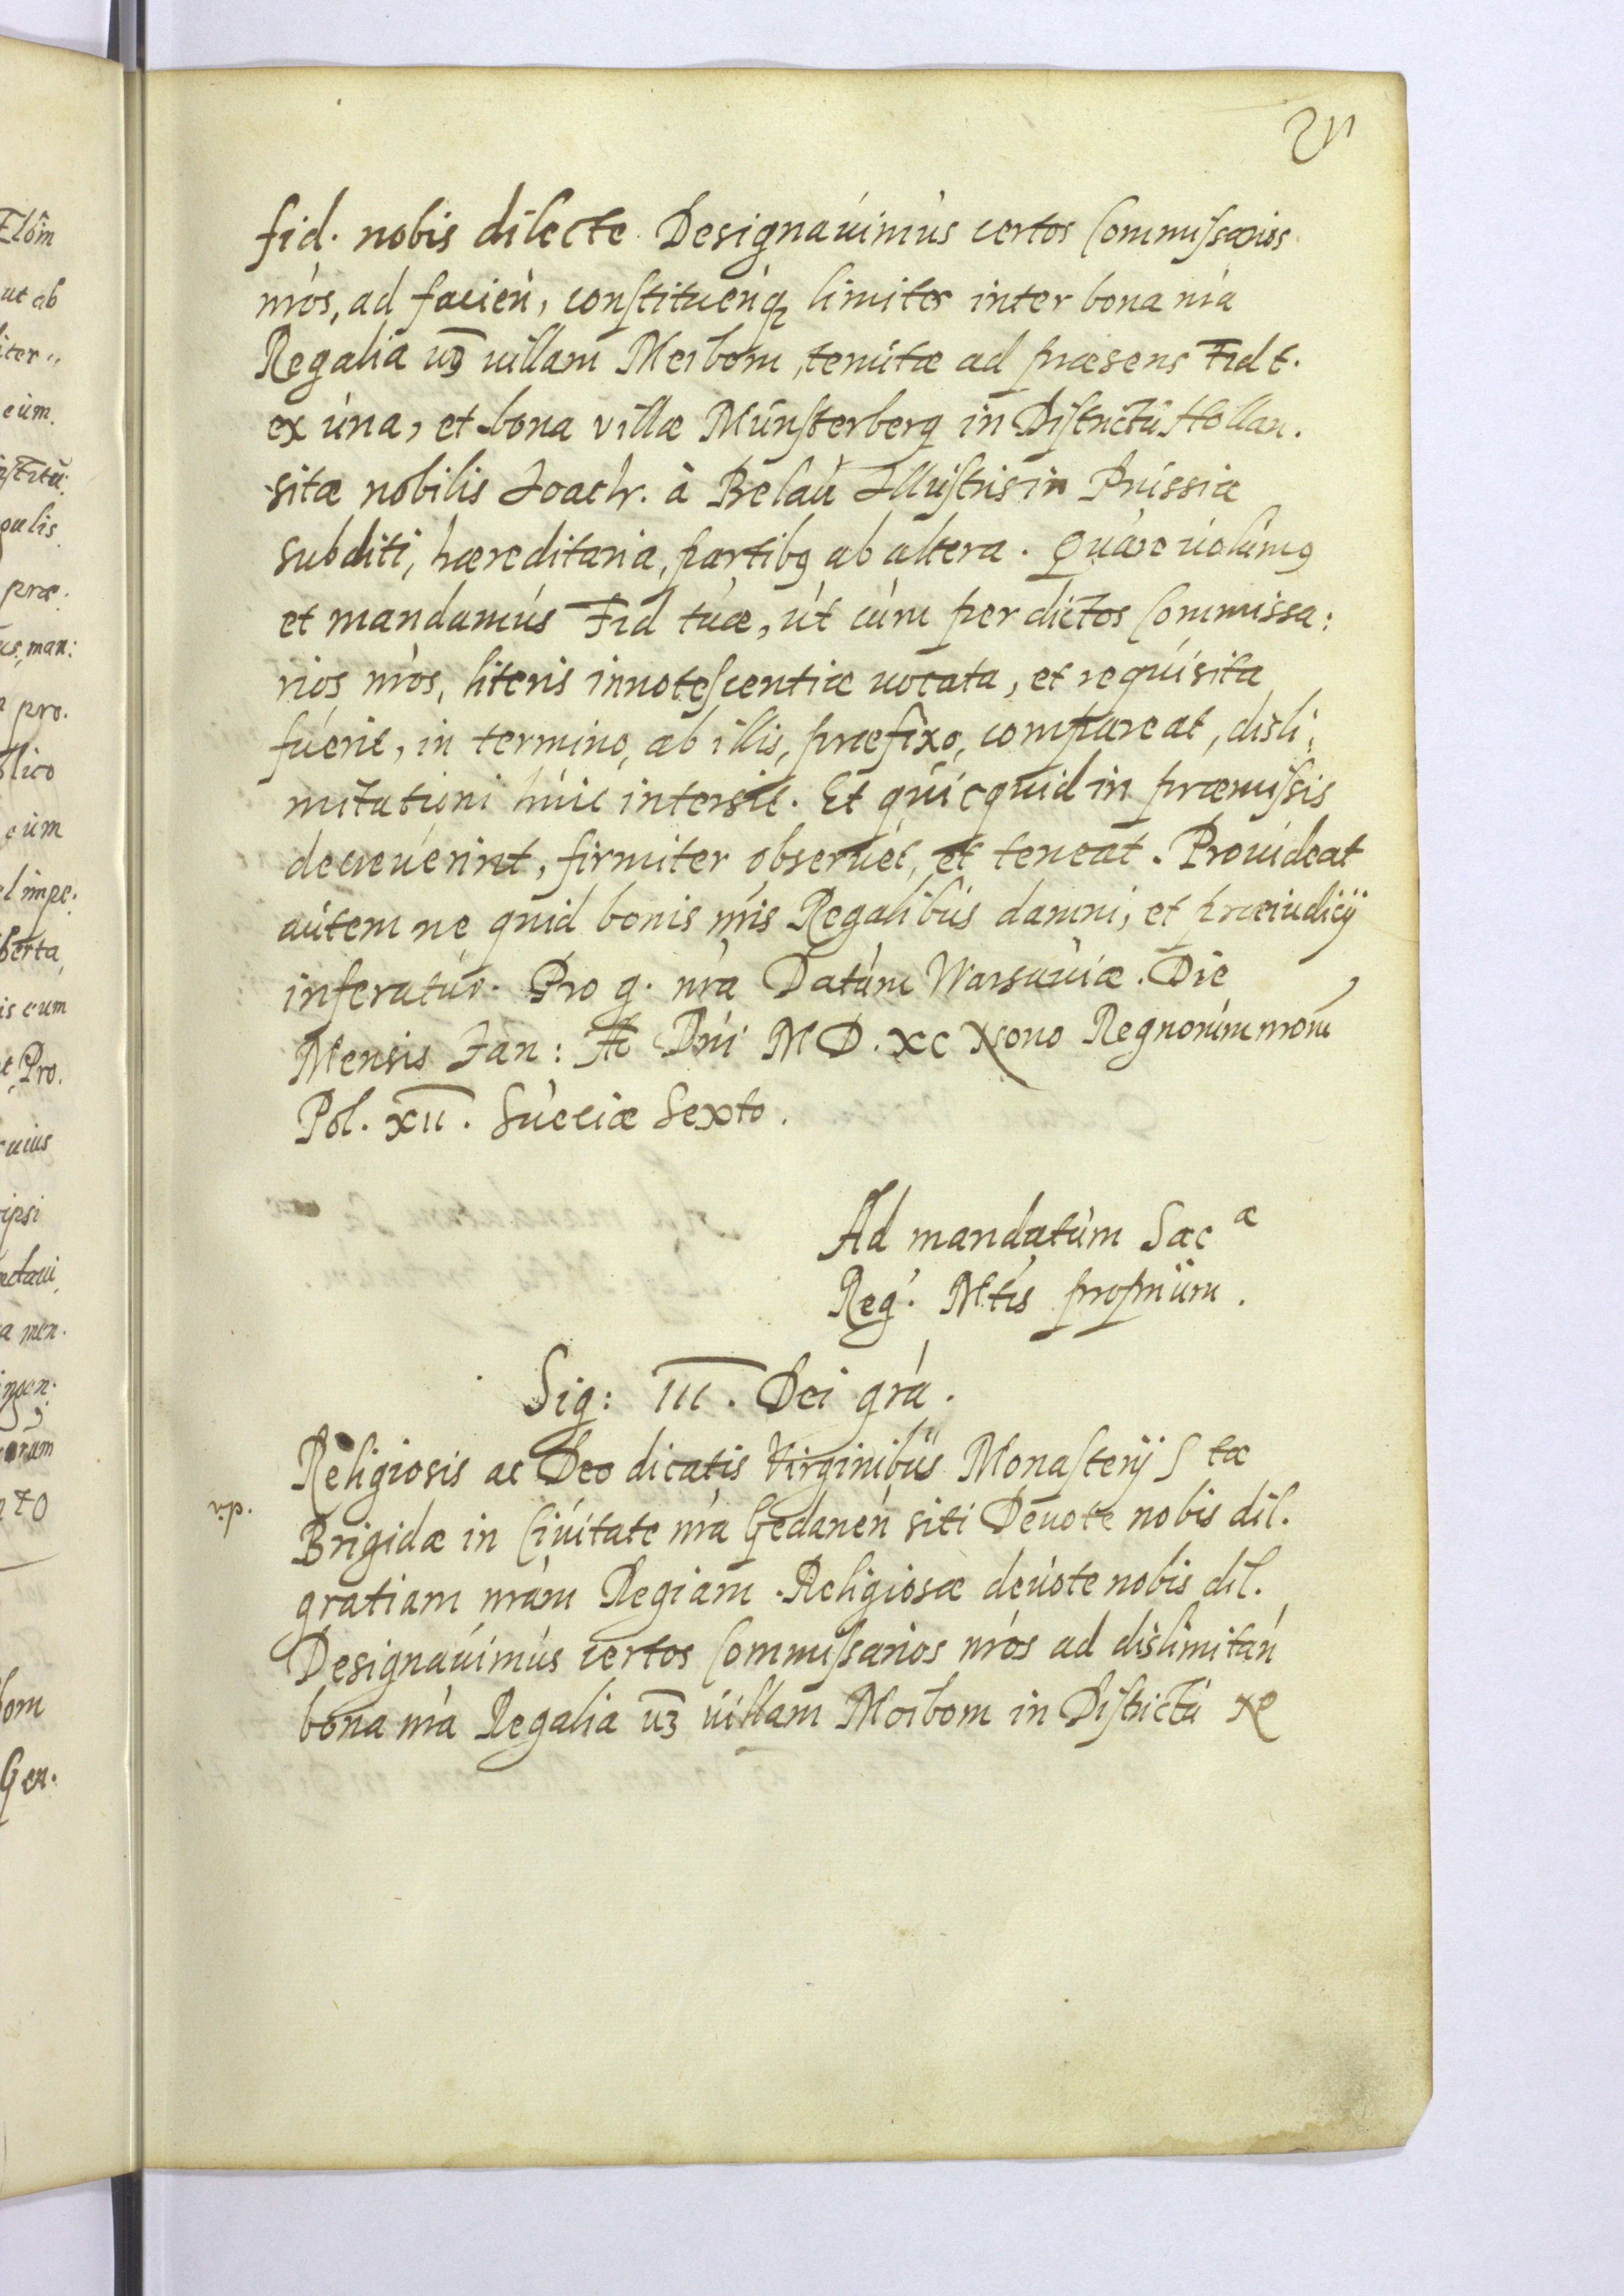 fid. nobis dilecte Designauimus certos Commissarios
nros, ad facien, constituenq limites inter bona nra
Regalia uz uillam Meibom, tenutæ ad præsens Fid t.
ex una, et bona villæ Munsterberg in Districtu Hollan.
sitæ nobilis Joach. à Belau Illustris in Prussia
subditi, hæreditaria, partibq ab altera. Quare uolumq
et mandamus Fid tuæ, ut cum per dictos Commissa:
rios nros, literis innotescentiæ uocata, et requisita
fuerit, in termino, ab illis, præfixo, compareat, disli:
mitationi huic intersit. Et quicquid in præmissis
decreuerint, firmiter obseruet, et teneat. Prouideat
autem ne quid bonis nris Regalibus damni, et præiudicij
inferatur. Pro g. nra Datum Warsauiæ. Die
Mensis Jan: Ao Dni MD.XC Nono Regnorum nrorum
Pol. XII. Sueciæ Sexto.
Ad mandatum Sac æ
Reg. Mtis proprium.
Sig: III. Dei gra.
Religiosis ac Deo dicatis Virginibus Monasterij S tæ
v.p.
Brigidæ in Ciuitate nra Gedanen siti Deuote nobis dil.
gratiam nram Regiam. Religiosæ deuote nobis dil.
Designauimus certos Commissarios nros ad dislimitan
bona nra Regalia uz uillam Moibom in Districtu